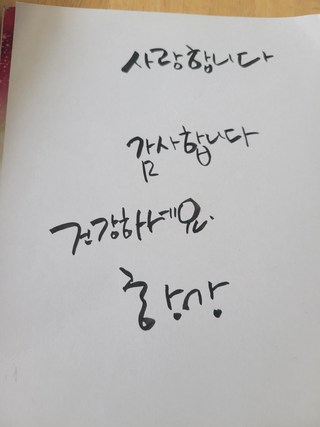 사랑합니다
감사합니다
건강하세요.